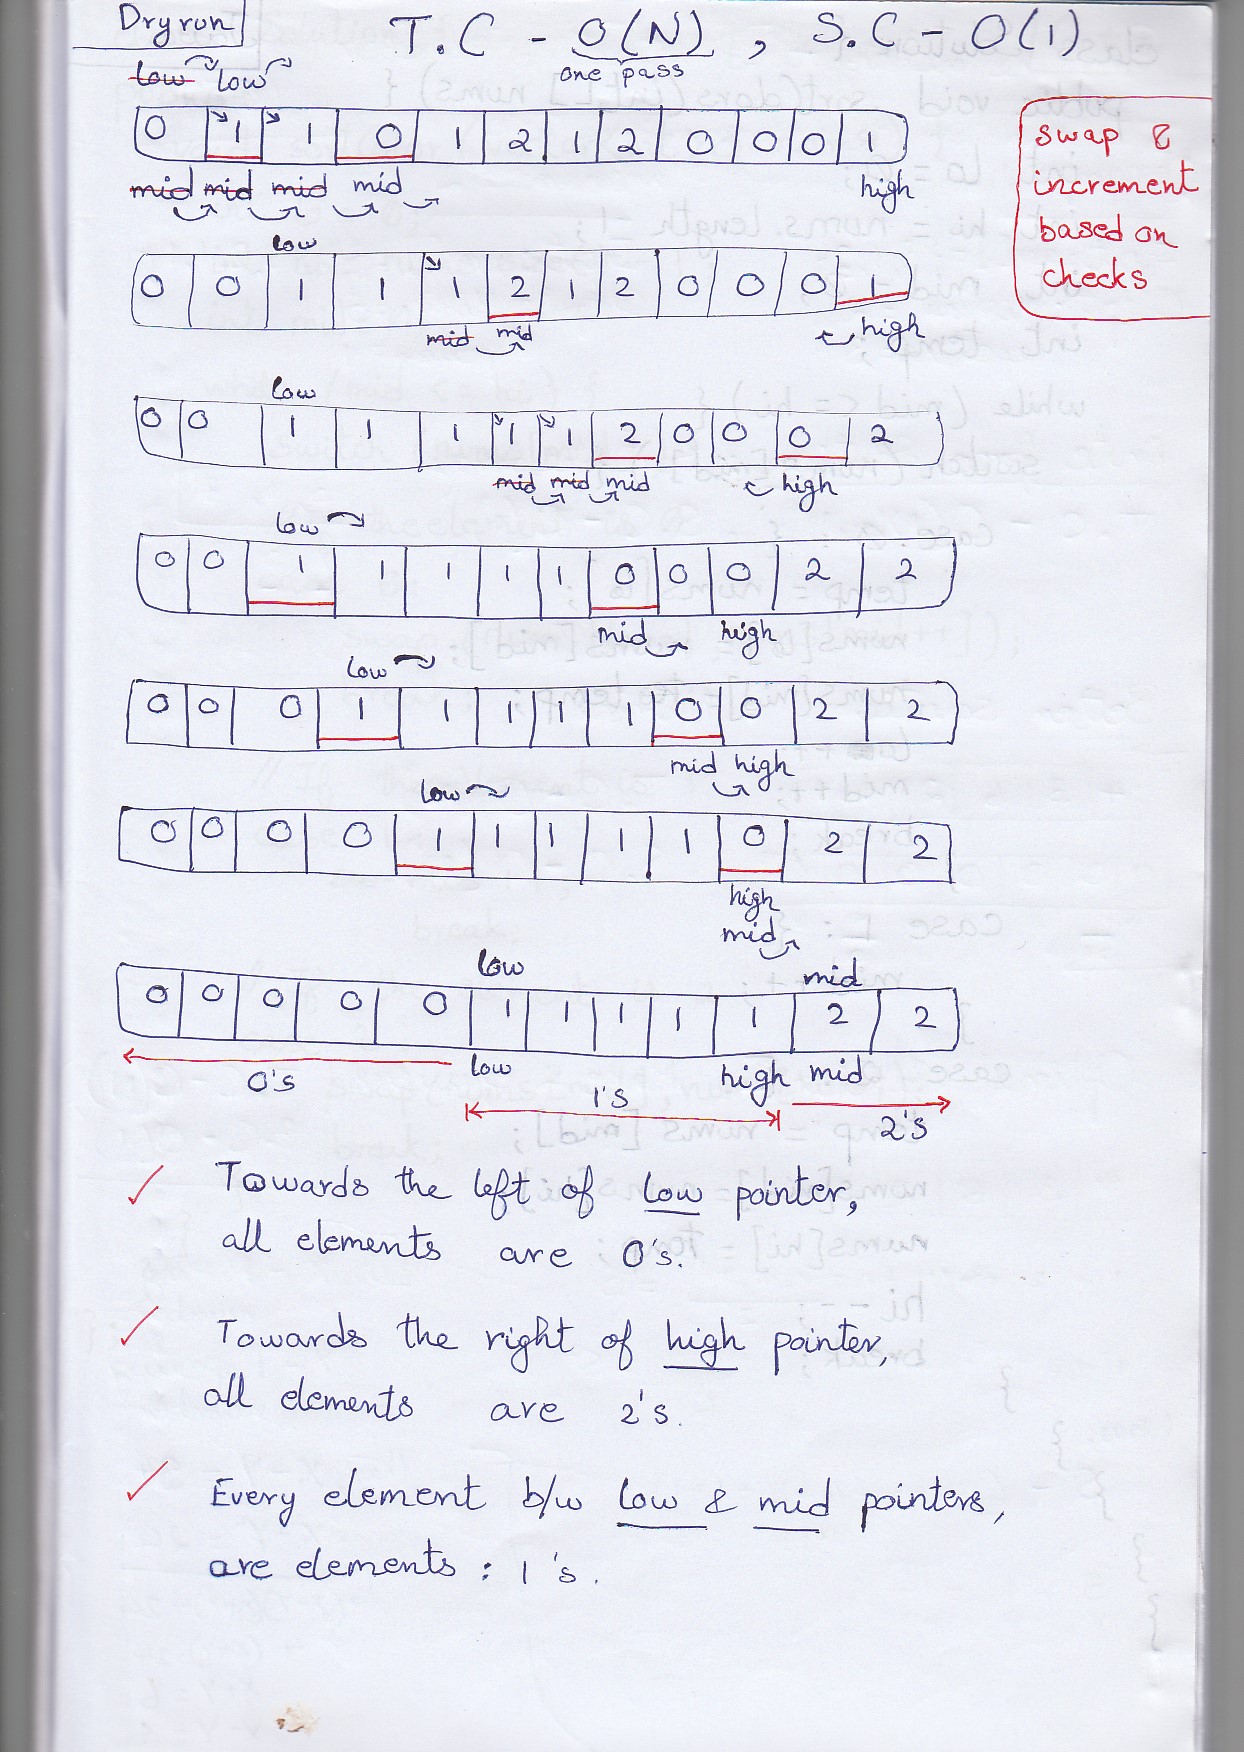 Dry run
T.C - O(N), S.C - O(1)
one pass
low low
0 1 1 0 1 2 1 2 0 0 0 1
mid mid mid mid high
swap &
increment
based on
checks
low
0 0 1 1 1 2 1 2 0 0 0 1
mid mid high
low
0 0 1 1 1 1 1 2 0 0 0 2
mid mid mid high
low
0 0 1 1 1 1 1 0 0 0 2 2
mid high
low
0 0 0 1 1 1 1 1 0 0 2 2
mid high
low
0 0 0 0 1 1 1 1 1 0 2 2
high
mid
low mid
0 0 0 0 0 1 1 1 1 1 2 2
low high mid
0's 1's 2's
Towards the left of low pointer,
all elements are 0's.
Towards the right of high pointer,
all elements are 2's.
Every element b/w low & mid pointers,
are elements : 1's.